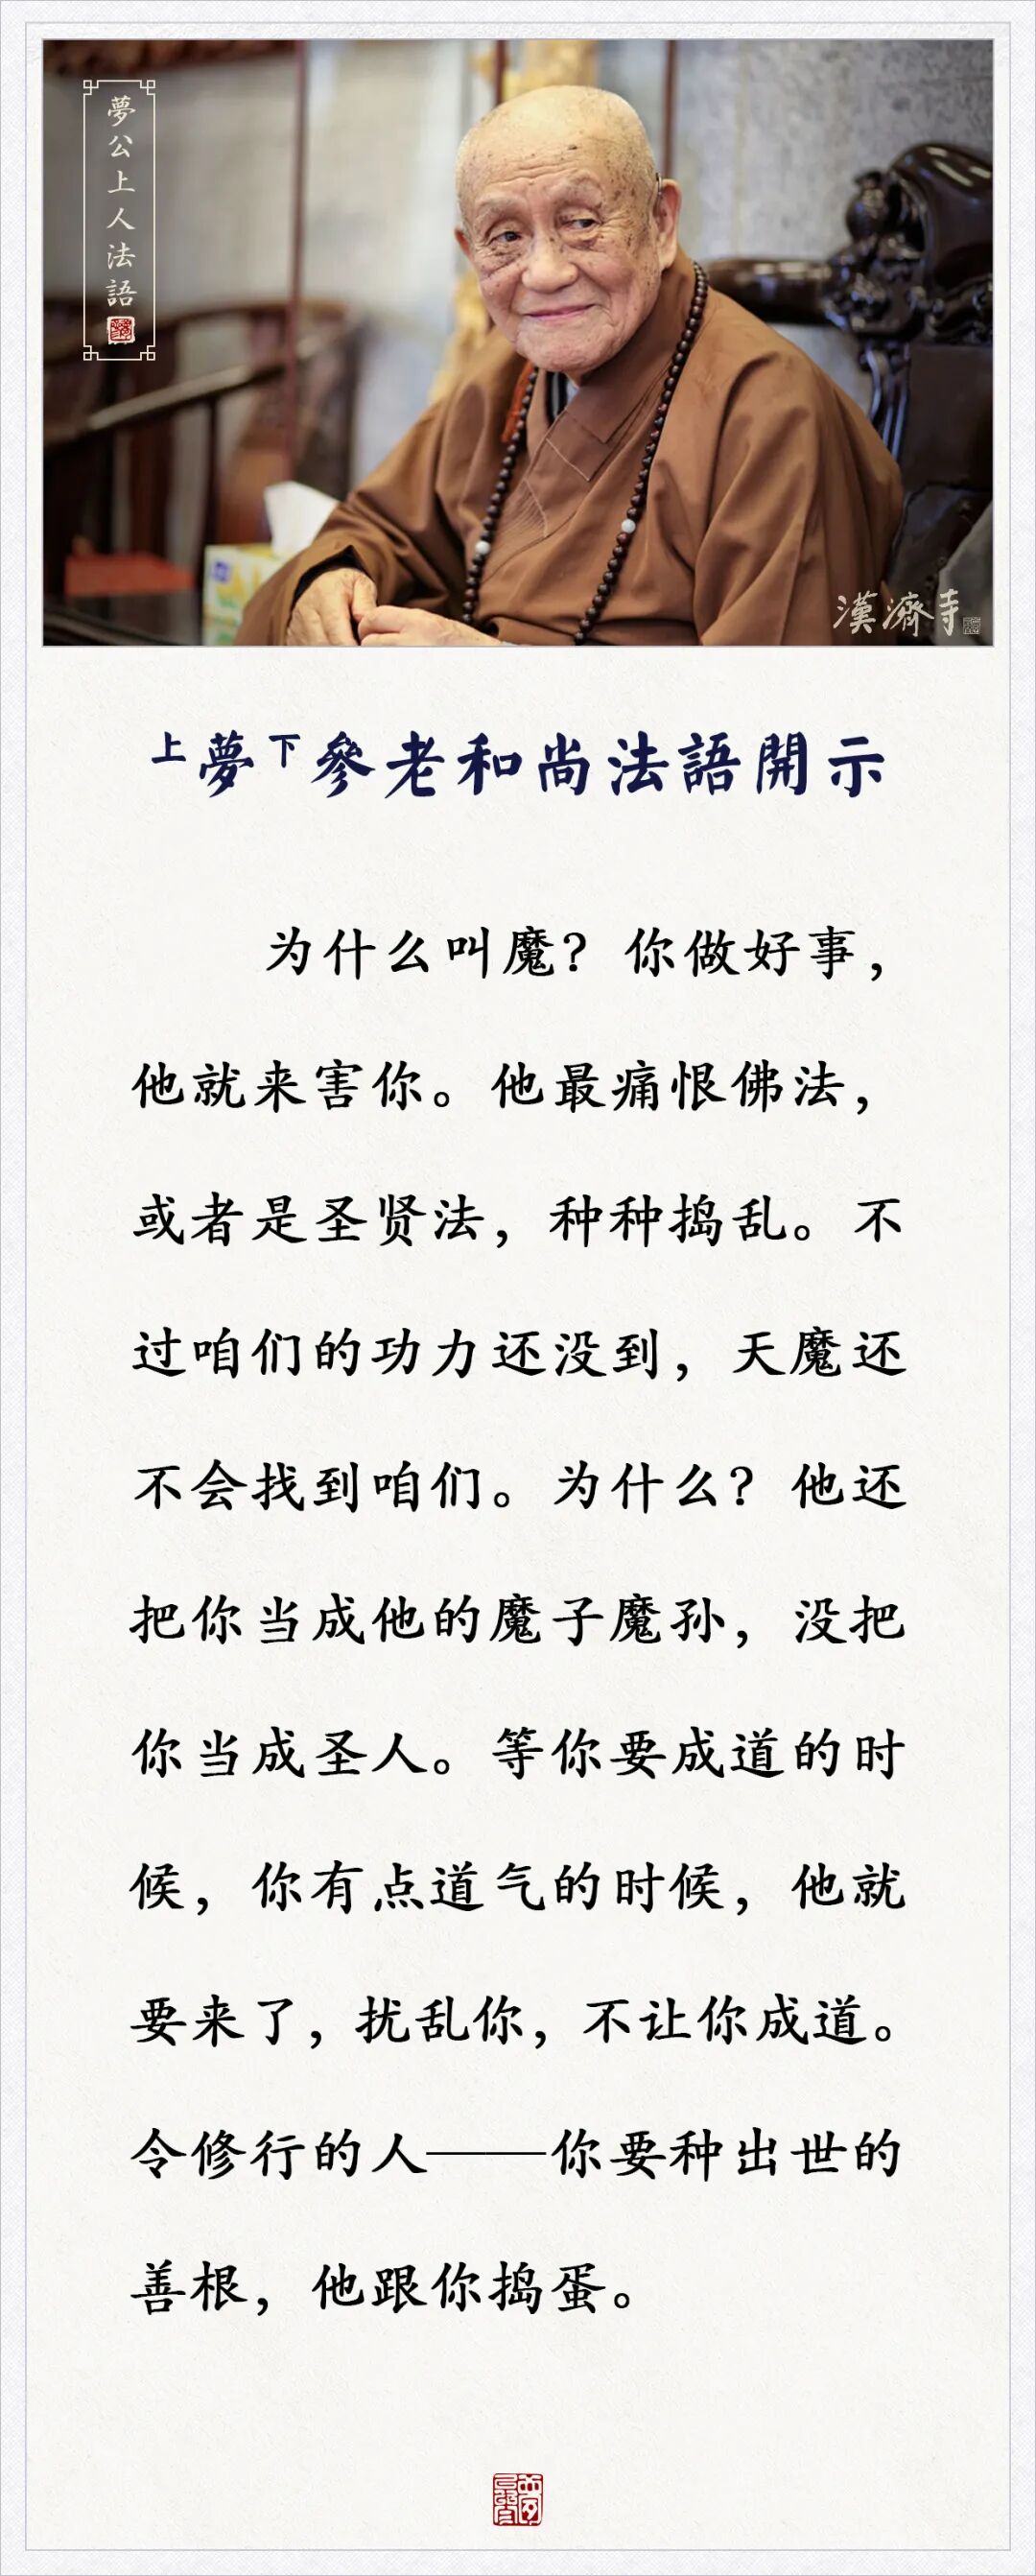 夢公上人法語
漢濟寺
上夢下參老和尚法語開示
为什么叫魔？你做好事，
他就来害你。他最痛恨佛法，
或者是圣贤法，种种捣乱。不
过咱们的功力还没到，天魔还
不会找到咱们。为什么？他还
把你当成他的魔子魔孙，没把
你当成圣人。等你要成道的时
候，你有点道气的时候，他就
要来了，扰乱你，不让你成道。
令修行的人——你要种出世的
善根，他跟你捣蛋。